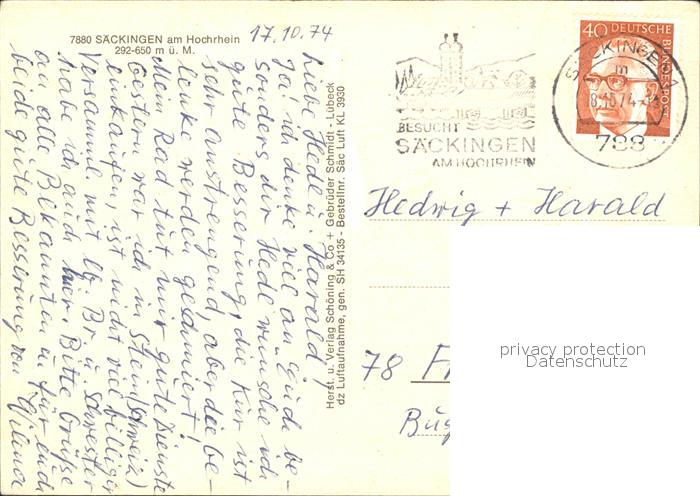 7880 SÄCKINGEN am Hochrhein
292-650 m ü. M.
17.10.74
Liebe Hede u. Harald!
Ja, ich denke viel an Euch be-
sonders dir Hede wünsche ich
gute Besserung, die Kur ist
sehr anstrengend, aber die Ge-
lenke werden geschmiert!
Mein Rad tut mir gute Dienste
Gestern war ich in Stein (Schweiz)
einkaufen, ist nicht viel billiger
Versamml. mit lb. Br. u. Schwester
habe ich auch hier. Bitte Grüße
an alle Bekannten u. für Euch
beide gute Besserung von
Herst. u. Verlag Schöning & Co + Gebrüder Schmidt - Lübeck
dz Luftaufnahme, gen. SH 34135 - Bestellnr. Säc Luft KL 3930
BESUCHT
SÄCKINGEN
AM HOCHRHEIN
SÄCKINGEN 1
m
788
40
DEUTSCHE
BUNDESPOST
Hedwig + Harald
78
privacy protection
Datenschutz